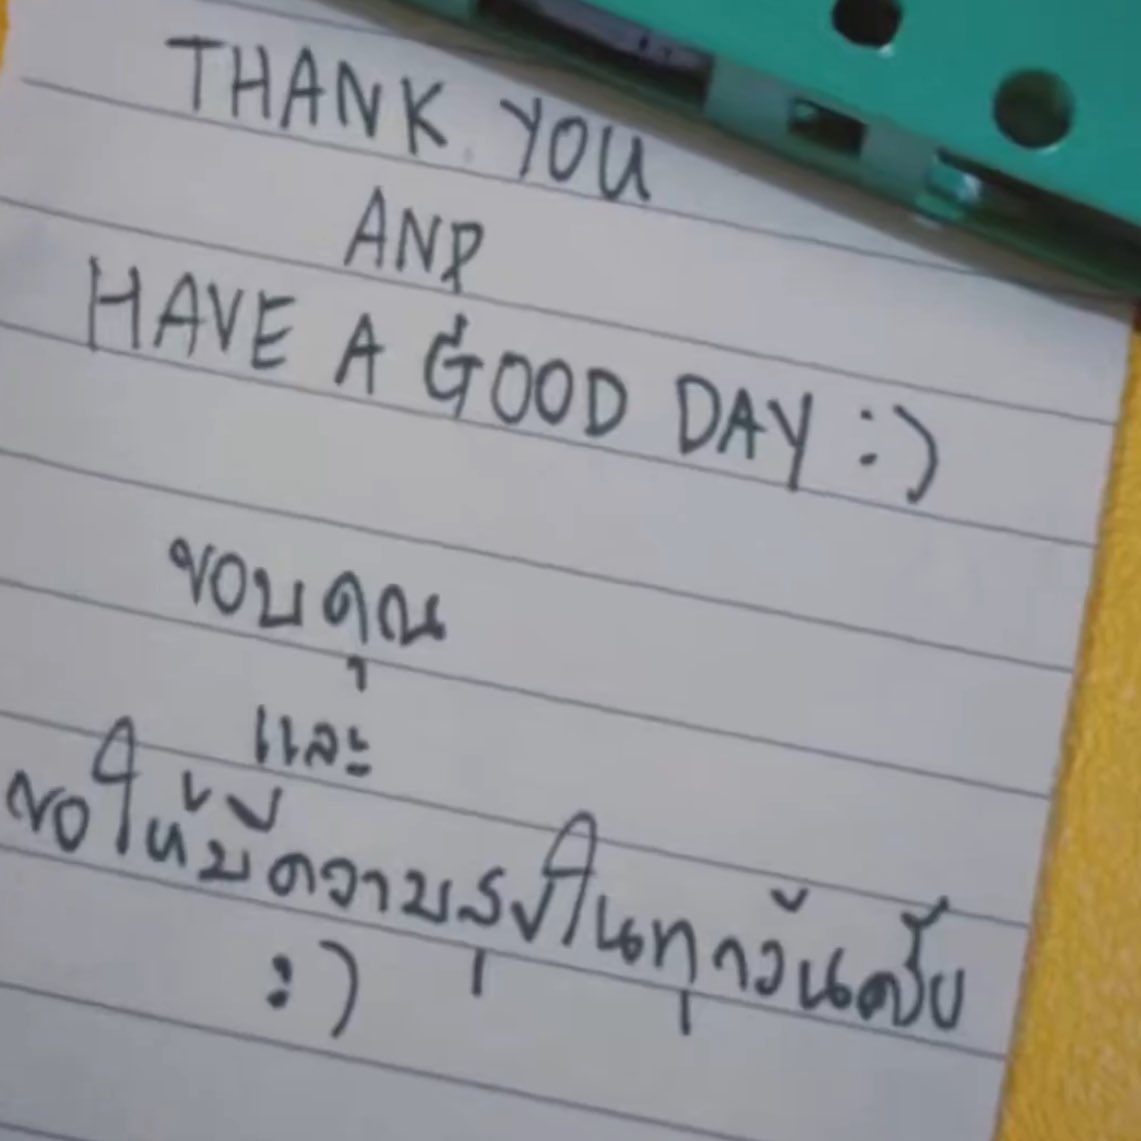 THANK YOU
AND
HAVE A GOOD DAY :)
ขอบคุณ
และ
ขอให้มีความสุขในทุกวันครับ
:)